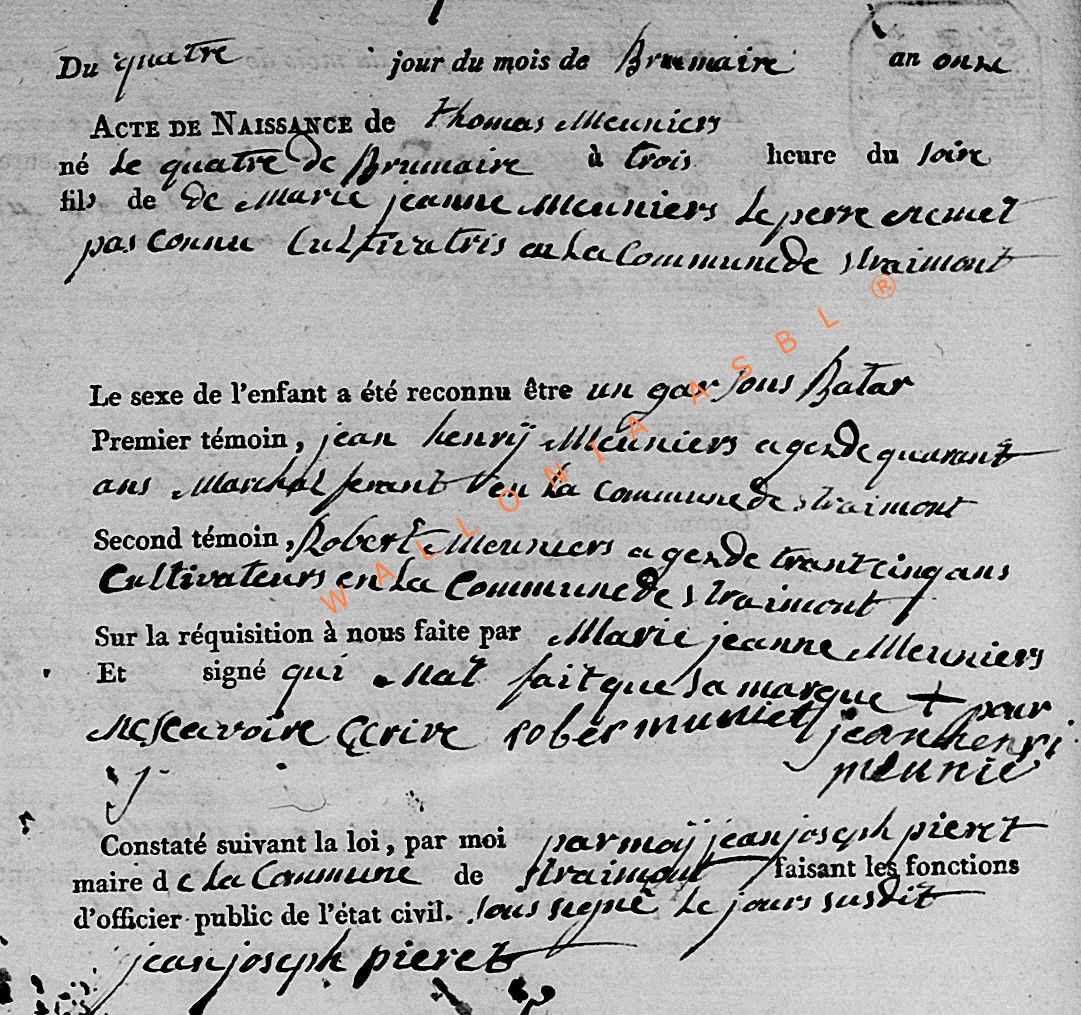 Du quatre jour du mois de Brumaire an onze
ACTE DE NAISSANCE de thomas Meuniers
né le quatre de Brumaire à trois heure du soire
fils de de Marie jeanne Meuniers le perre
pas connu Cultivatris en la Commune de straimont
Le sexe de l'enfant a été reconnu être un garsons Batar
Premier témoin, jean henrij Meuniers agende quarant
ans Marchal ferant en la Commune de straimont
Second témoin, Robert Meuniers agende trant cinq ans
Cultivateurs en la Commune de straimont
Sur la réquisition à nous faite par Marie jeanne Meuniers
Et signé qui nat fait que sa marque + pour
ne scavoire Ecrire rober muniet jean henri
meunie
Constaté suivant la loi, par moi par moij jean joseph pieret
maire de la Commune de straimont faisant les fonctions
d'officier public de l'état civil. sous signé le jours susdit
jean joseph pieret
WALLONIA ASBL ®